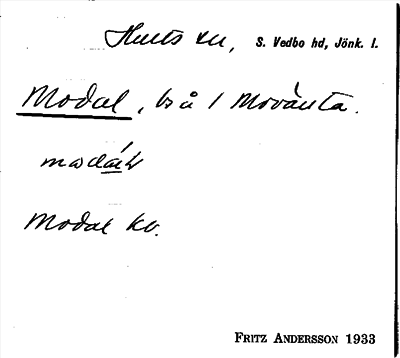 Hults sn, S. Vedbo hd, Jönk. l.
Modal, bs å / Movänta.
Modal kv.
FRITZ ANDERSSON 1933